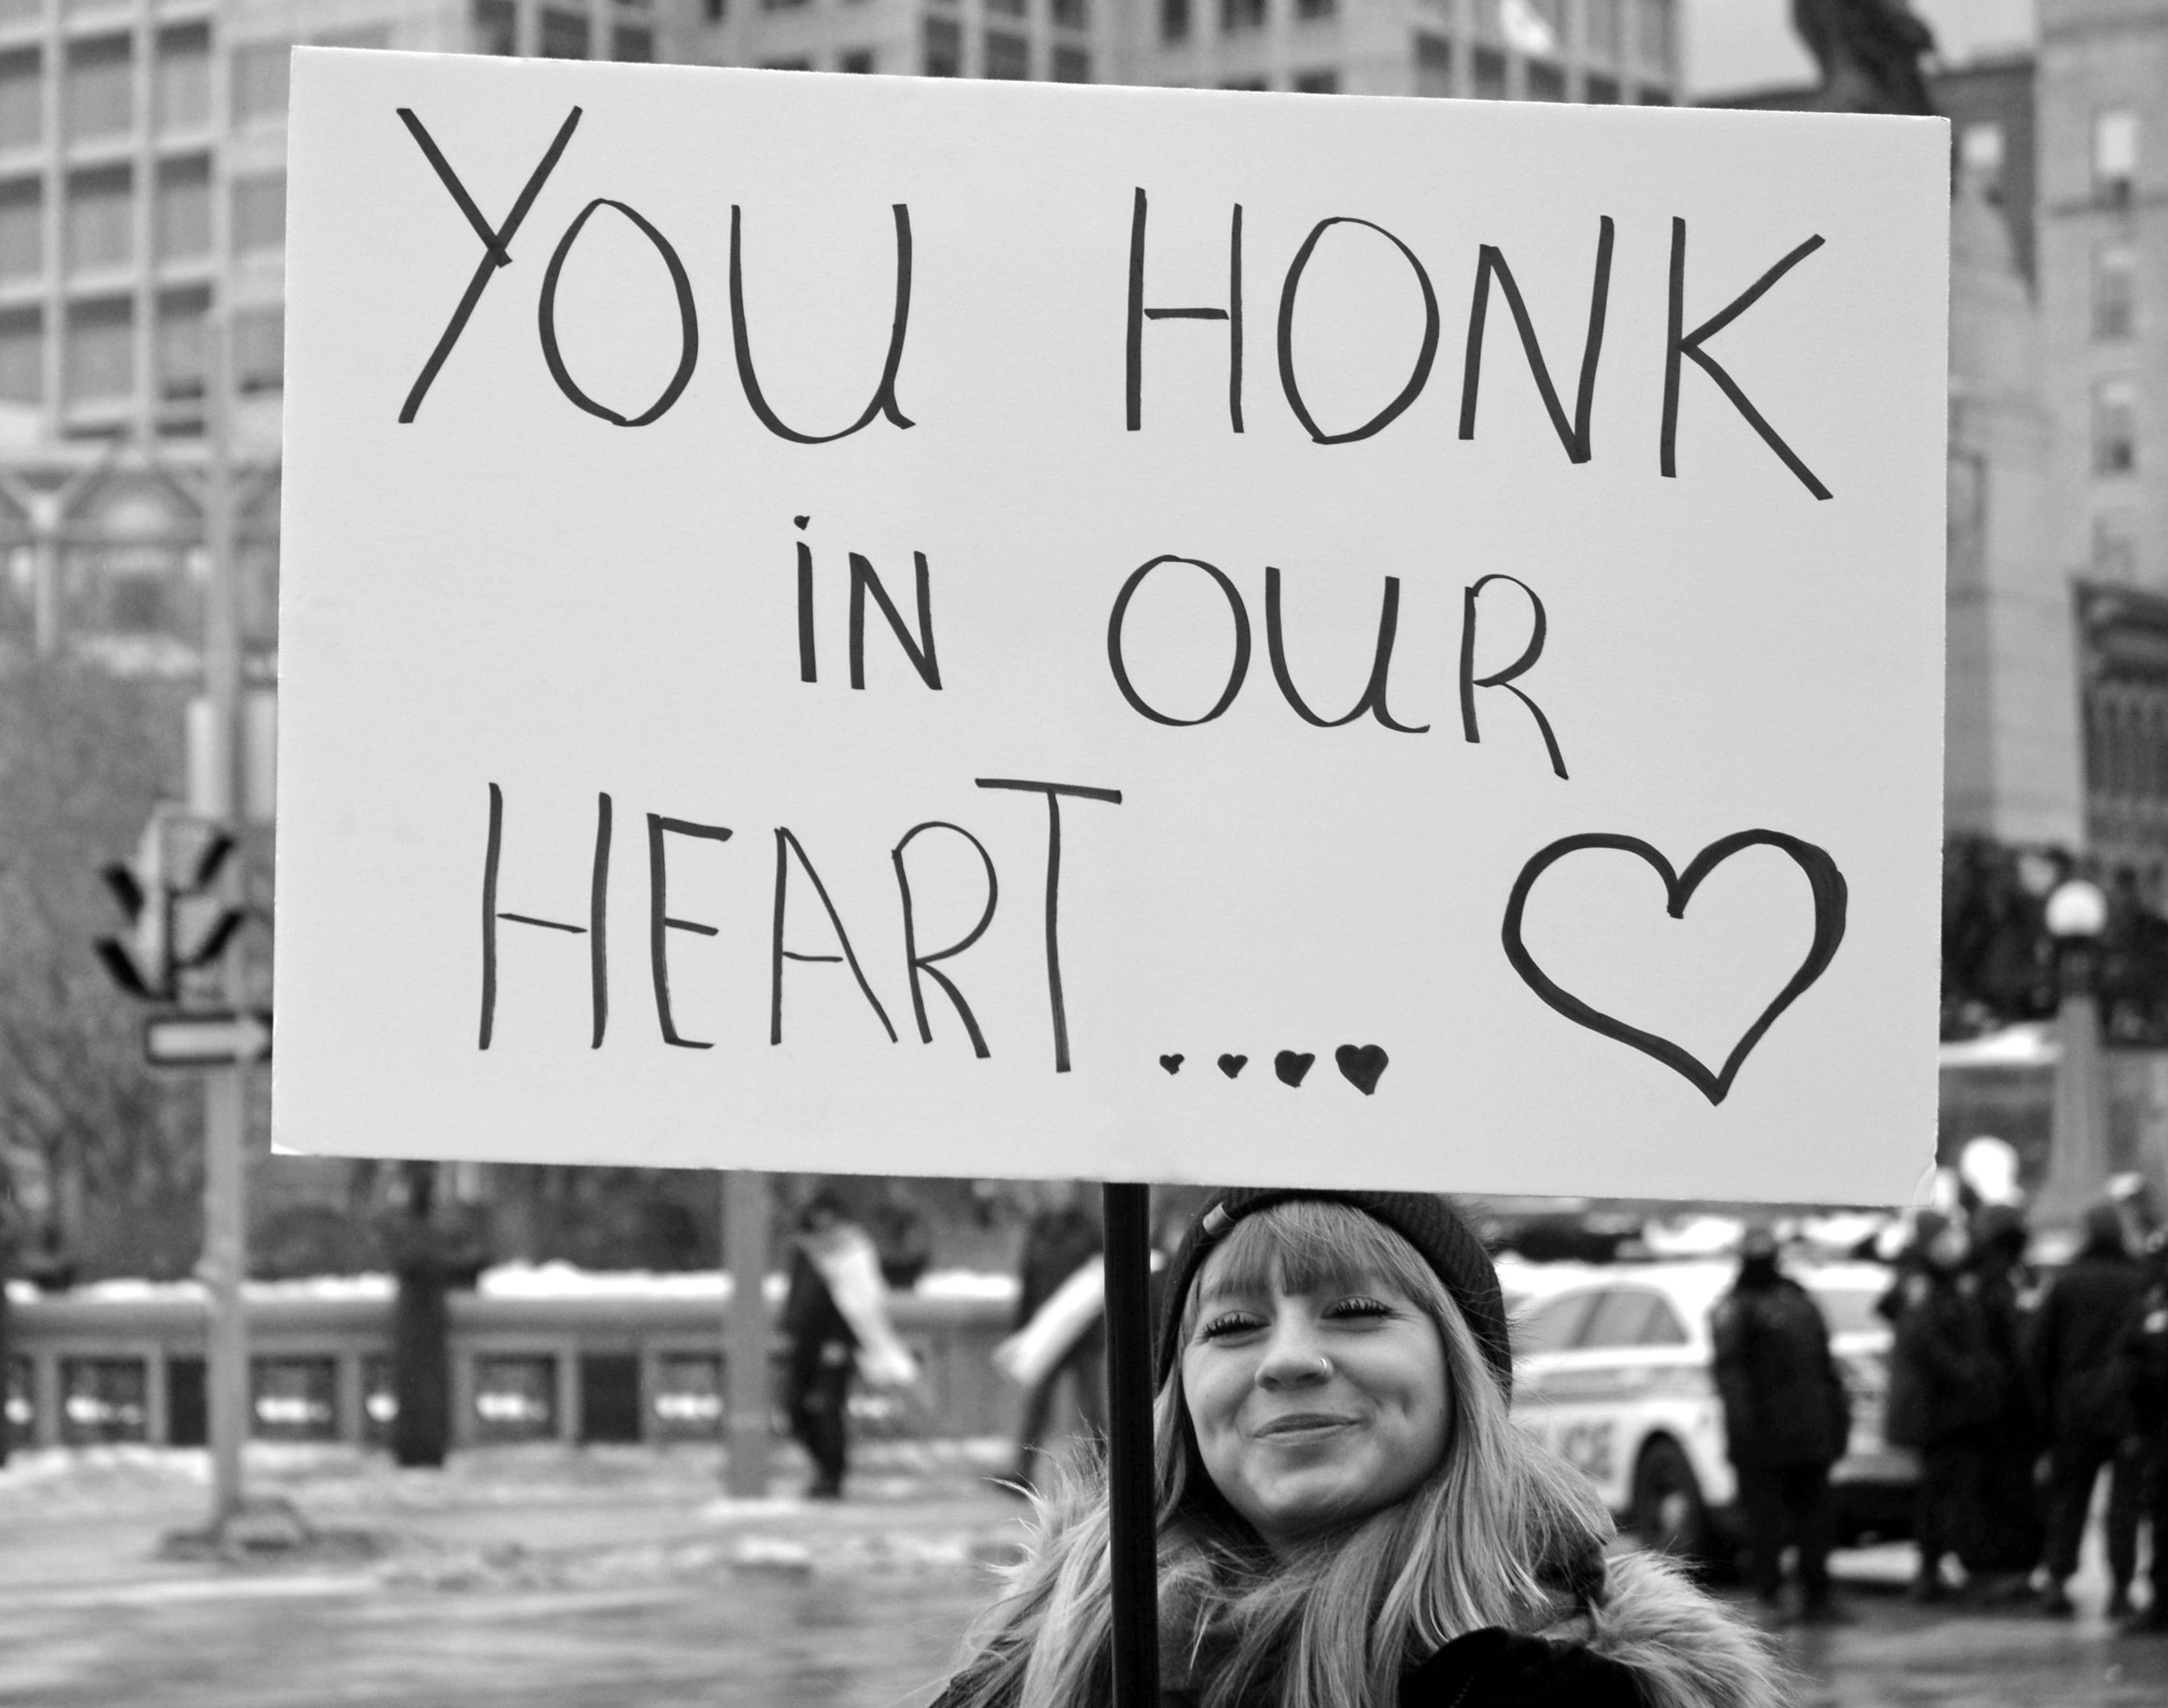 YOU HONK
iN OUR
HEART....